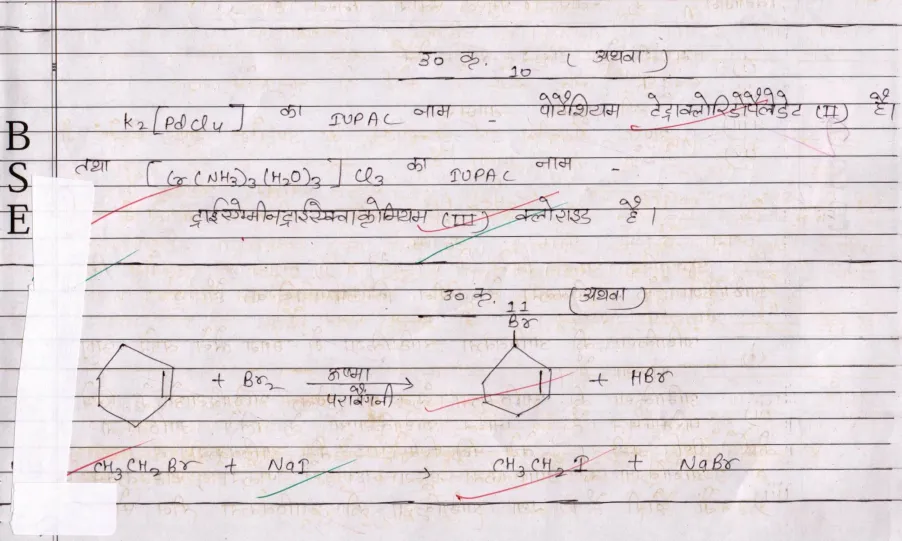 उ० क्र. 10 ( अथवा )
K2[PdCl4] का IUPAC नाम पोटैशियम टेट्राक्लोरिडोपैलेडेट (II) है।
तथा [Cr(NH3)3(H2O)3]Cl3 का IUPAC नाम -
ट्राईऐमीनट्राईऐक्वाक्रोमियम (III) क्लोराइड है।
उ० क्र. 11 (अथवा)
Br
+ Br2 ऊष्मा पराबैंगनी → + HBr
CH3CH2Br + NaI → CH3CH2I + NaBr
B
S
E